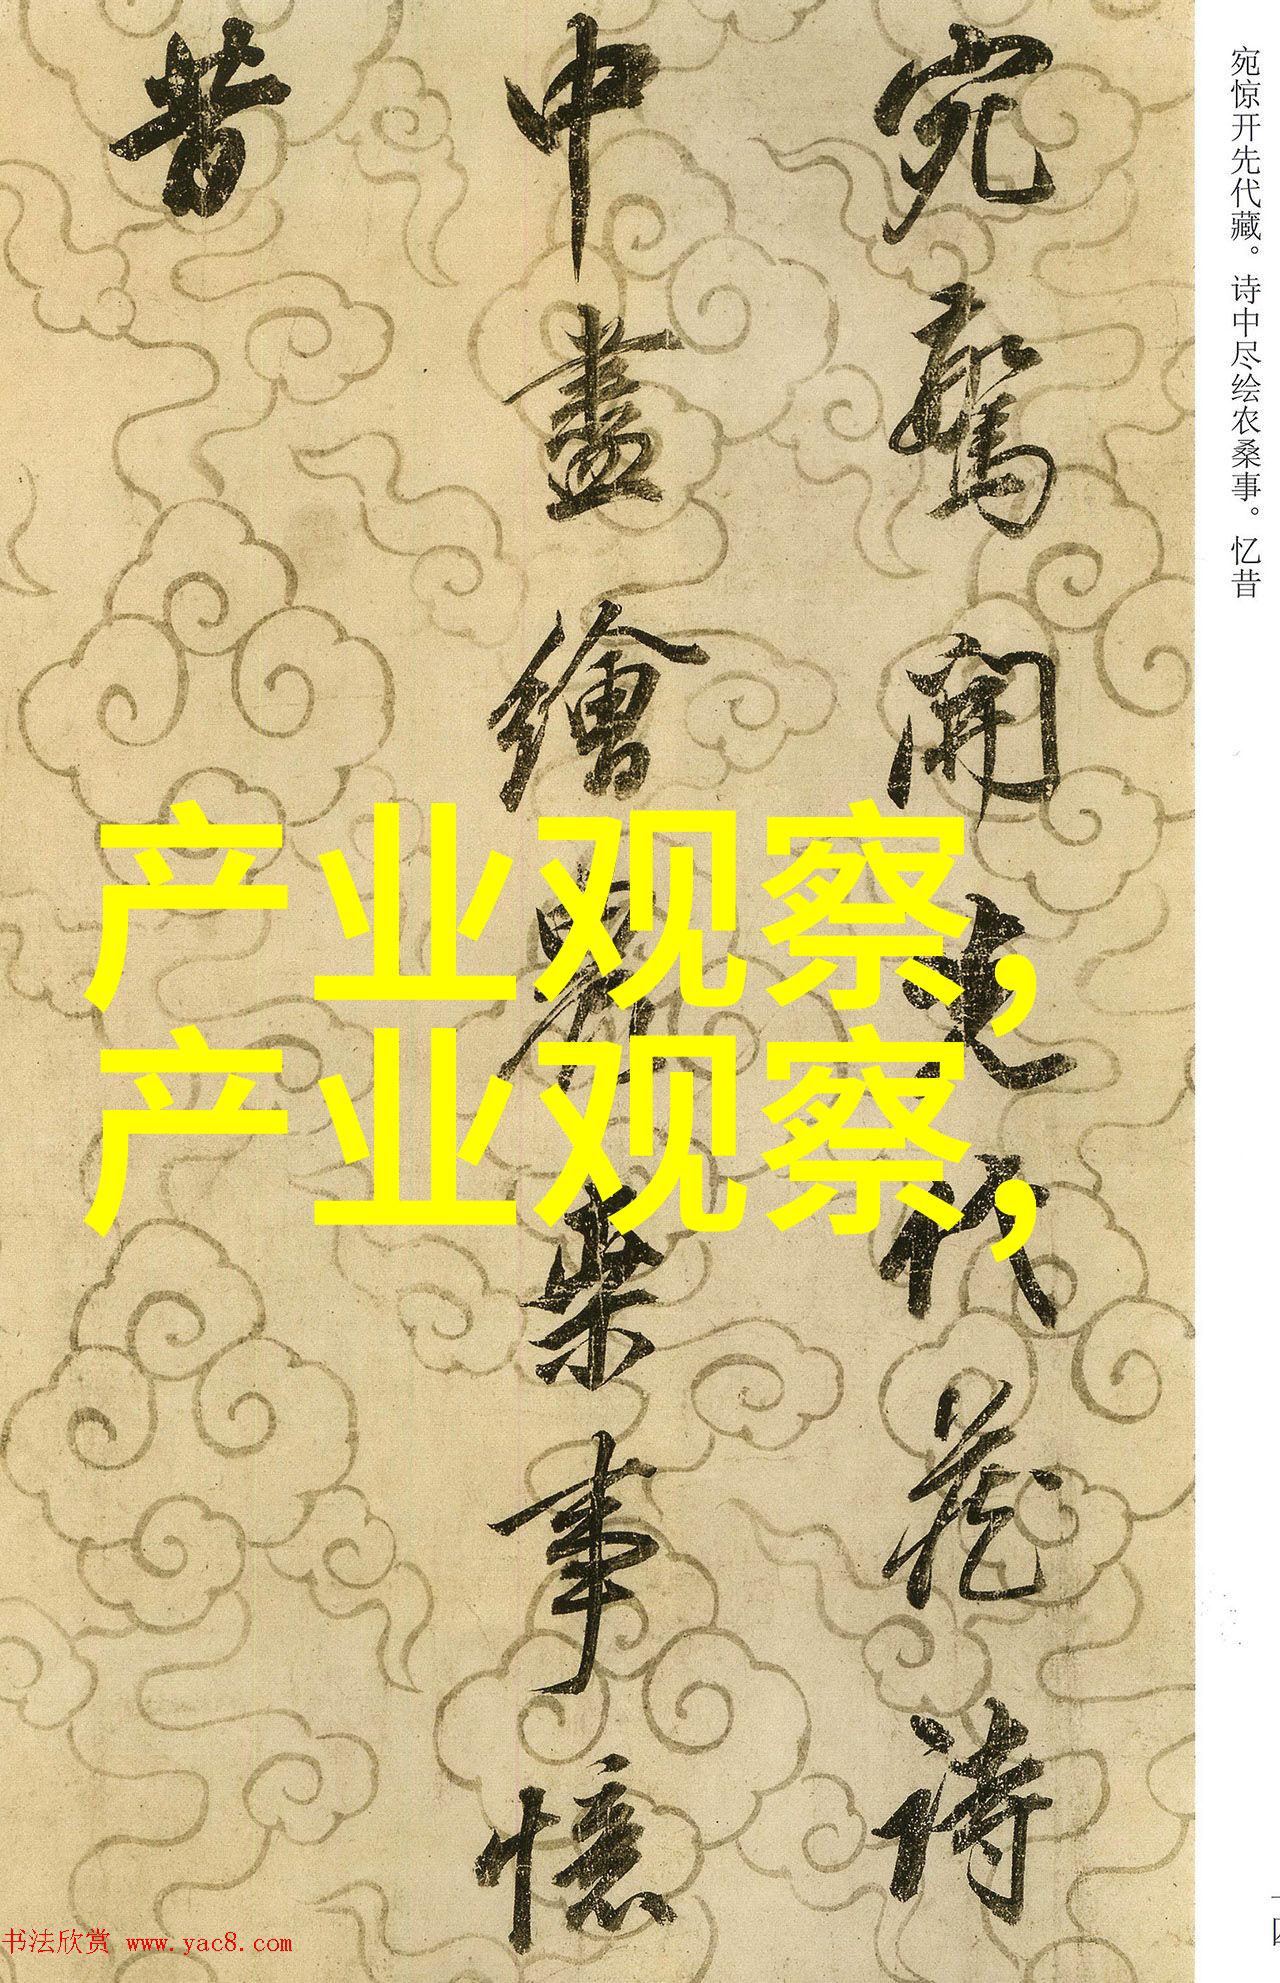 宛驚開先代藏詩
中盡繪農桒事憶
昔
宛惊开先代藏。诗中尽绘农桑事。忆昔
产业观察,
产业观察,
书法欣赏 www.yac8.com